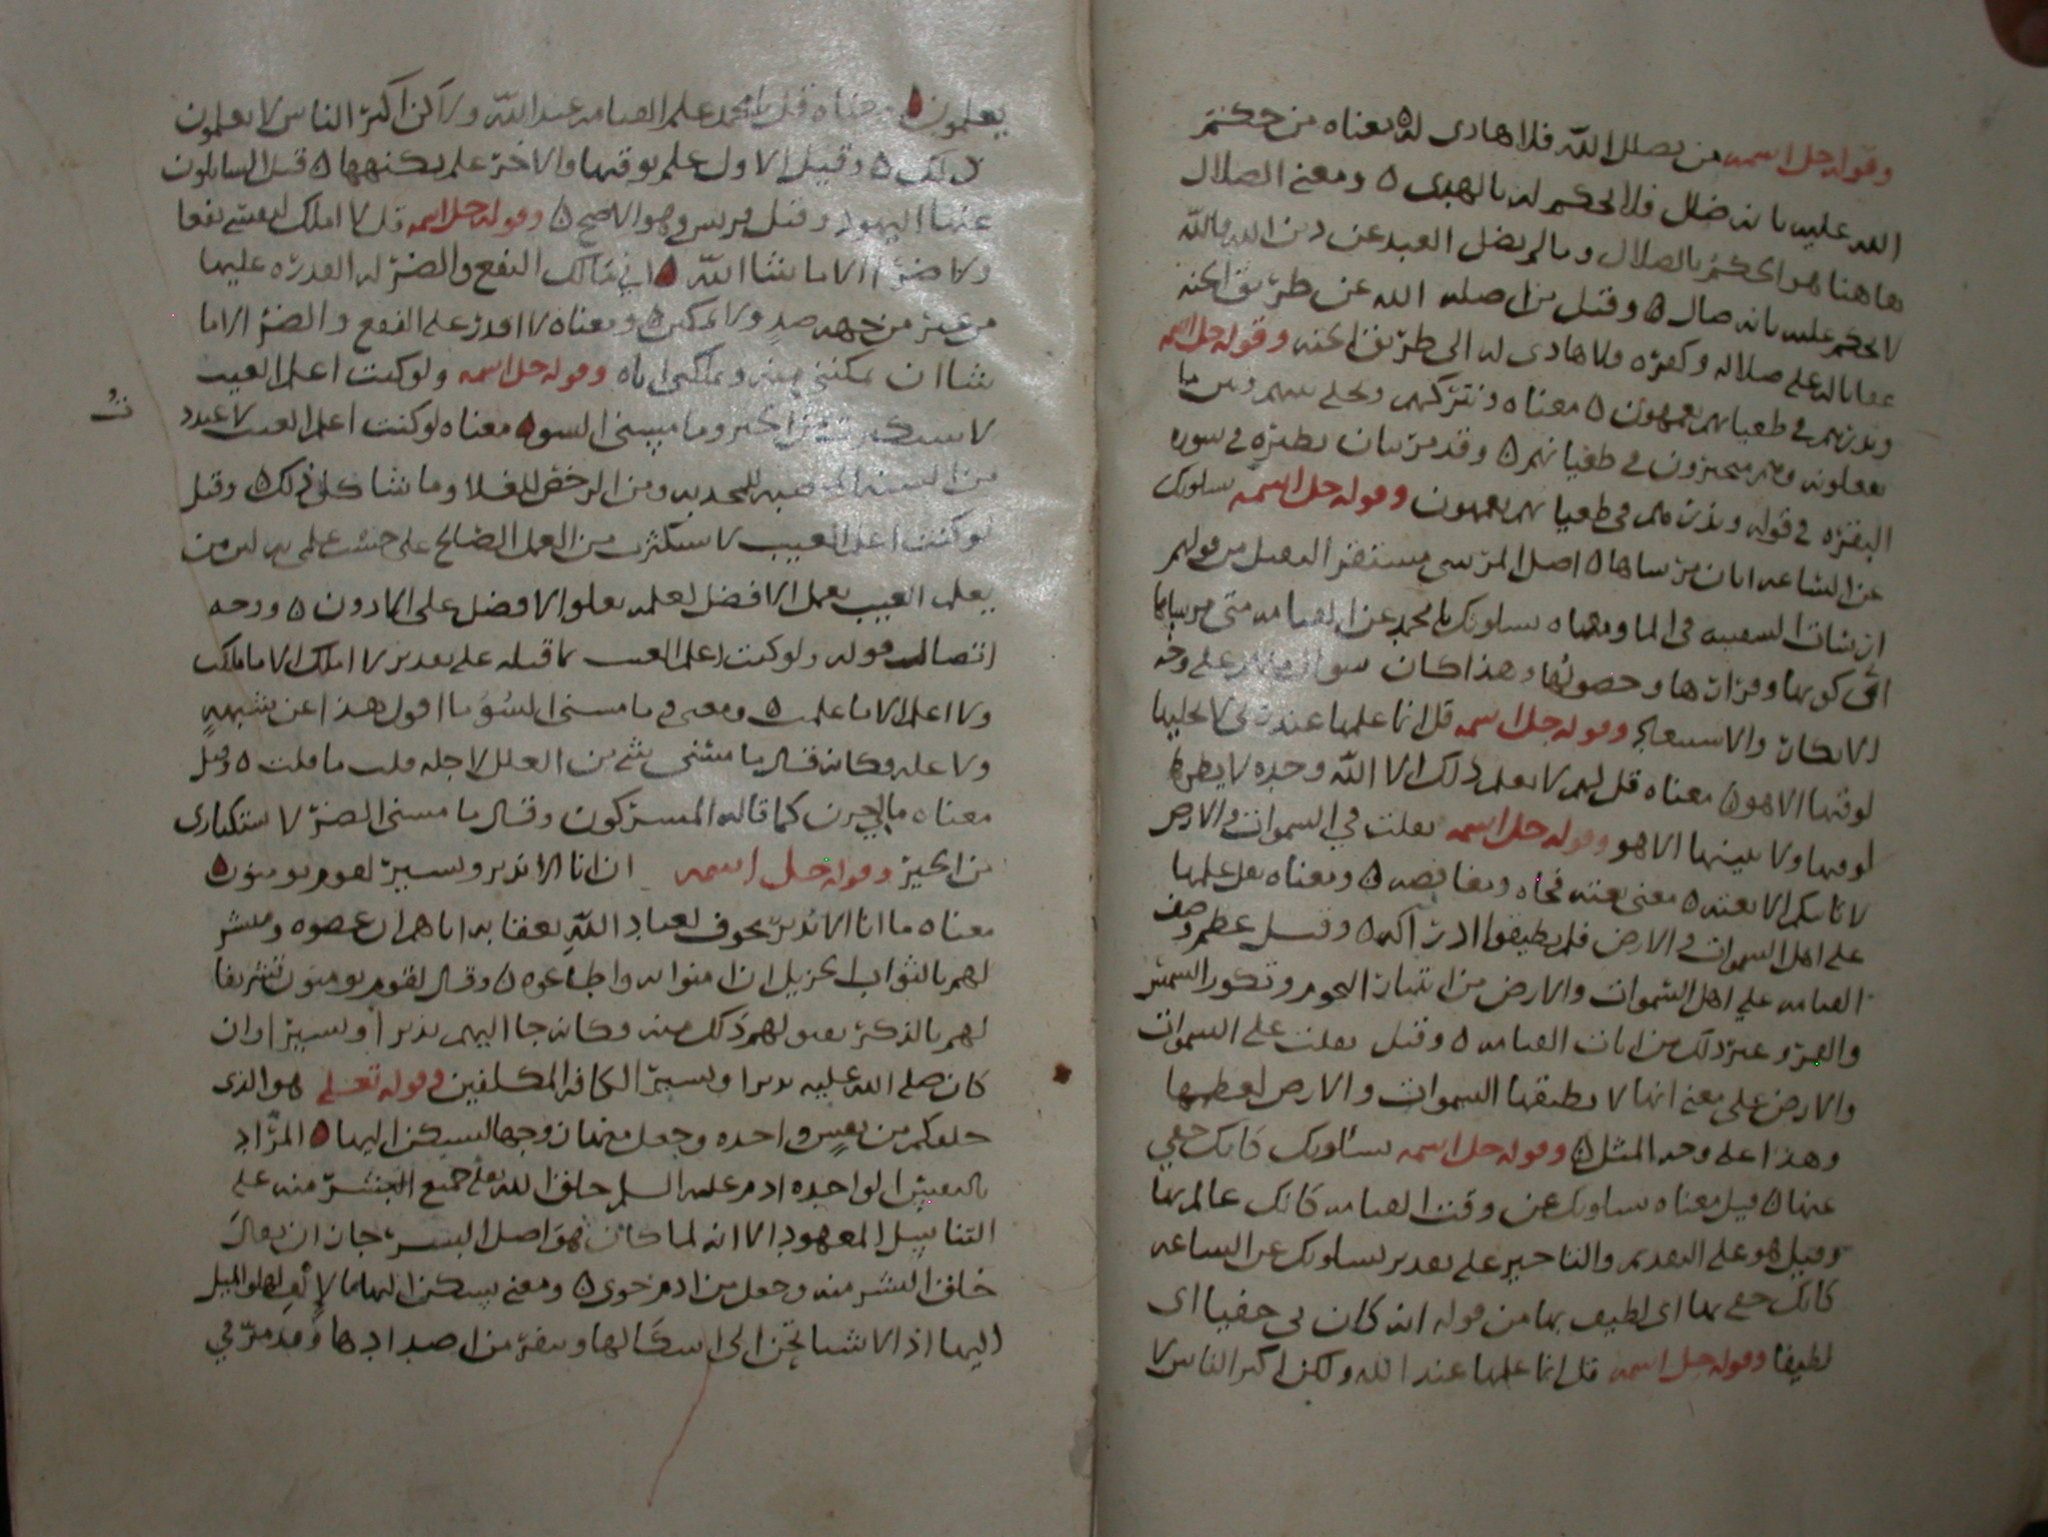 وقوله جل اسمه من يضلل الله فلا هادى له ٥ معناه من حكم
الله عليه بانه ضال فلا يحكم له بالهدى ٥ ومعنى الضلال
هاهنا هو الحكم بالضلال وما لم يضل العبد عن دين الله فالله
لا يحكم عليه بانه ضال ٥ وقيل من اضله الله عن طريق الجنه
عقابا له على ضلاله وكفره فلا هادى له الى طريق الجنه وقوله جل اسمه
ونذرهم في طغيانهم يعمهون ٥ معناه ونتركهم ونخلي بينهم وبين ما
يفعلونه وهم متحيرون في طغيانهم ٥ وقد مر بيان نظيره في سوره
البقره في قوله ونذرهم في طغيانهم يعمهون وقوله جل اسمه يسلونك
عن الساعه ايان مرساها ٥ اصل المرسى مستقر الثقيل من قولهم
ارسات السفينه في الما ومعناه يسلونك يا محمد عن القيامه متى مرساها
اى كونها وحصولها وهذا كان سوال منهم على وجه
الانكار والاستبعاد وقوله جل اسمه قل انما علمها عند ربى لا يجليها
لوقتها الا هو ٥ معناه قل لهم لا يعلم ذلك الا الله وحده لا يظهرها
لوقتها ولا يبينها الا هو وقوله جل اسمه ثقلت في السموات والارض
لا تاتيكم الا بغته ٥ معنى بغته فجاه ٥ ومعناه ثقل علمها
على اهل السموات والارض فلم يطيقوا ادراكه ٥ وقيل عظم وصف
القيامه على اهل السموات والارض من انتثار النجوم وتكور الشمس
والقمر وغير ذلك من ايات القيامه ٥ وقيل ثقلت على السموات
والارض على معنى انها لا تطيقها السموات والارض لعظمها
وهذا على وجه المثل ٥ وقوله جل اسمه يسئلونك كانك حفي
عنها ٥ قيل معناه يسلونك عن وقت القيامه كانك عالم بها
وقيل هو على التقديم والتاخير على تقدير يسلونك عن الساعه
كانك حفي بها اى لطيف بها من قوله انه كان بى حفيا اى
لطيفا وقوله جل اسمه قل انما علمها عند الله ولكن اكثر الناس لا
يعلمون ٥ معناه قل يا محمد علم القيامه عند الله ولاكن اكثر الناس لا يعلمون
ذلك ٥ وقيل الاول علم بوقتها والاخر علم بكنهها ٥ قيل السايلون
عنها اليهود وقيل قريش وهو الاصح ٥ وقوله جل اسمه قل لا املك لنفسي نفعا
ولا ضرا الا ما شا الله ٥ اني مالك النفع والضر له القدره عليها
من غير من جهه ضد ولا تمكين ٥ ومعناه لا اقدر على النفع والضر الا ما
شا ان يمكننى منه ويملكنى اياه وقوله جل اسمه ولو كنت اعلم الغيب
لاستكثرت من الخير وما مسنى السوء معناه لو كنت اعلم الغيب لاعددت
من السنه المخصبه للمجدبه ومن الرخص للغلا وما شاكل ذلك ٥ وقيل
لو كنت اعلم الغيب لاستكثرت من العمل الصالح على حسب علمى به لان من
يعلم الغيب يعمل الافضل لعلمه بعلو الافضل على الادون ٥ ووجه
اتصال قوله ولو كنت اعلم الغيب بما قبله على تقدير لا املك الا ما ملكت
ولا اعلم الا ما علمت ٥ ومعنى وما مسنى السوء ما اقول هذا عن شبهه
ولا عله فكانه قال ما مسنى شى من العلل لاجله قلت ما قلت ٥ وقيل
معناه ما بي جنون كما قاله المشركون وقال ما مسنى الضر لاستكثارى
من الخير وقوله جل اسمه ان انا الا نذير وبشير لقوم يومنون ٥
معناه ما انا الا نذير مخوف لعباد الله بعقابه اياهم ان عصوه ومبشر
لهم بالثواب الجزيل ان امنوا به واطاعوه ٥ وقال لقوم يومنون تشريفا
لهم بالذكر لهم ذلك منه وكانه جا اليهم نذيرا وبشيرا وان
كان صلى الله عليه نذيرا وبشيرا الى كافه المكلفين وقوله تعالى هو الذى
خلقكم من نفس واحده وجعل منها زوجها ليسكن اليها ٥ المراد
بالنفس الواحده ادم عليه السلم خلق الله تعالى جميع البشر منه على
التناسل المعهود الا انه لما كان هو اصل البشر جاز ان يقال
خلق البشر منه وجعل من ادم حوى ٥ ومعنى يسكن اليها اى يالفها والميل
اليها اذ الاشيا تحن الى اشكالها وتنفر من اضدادها وقد مر في